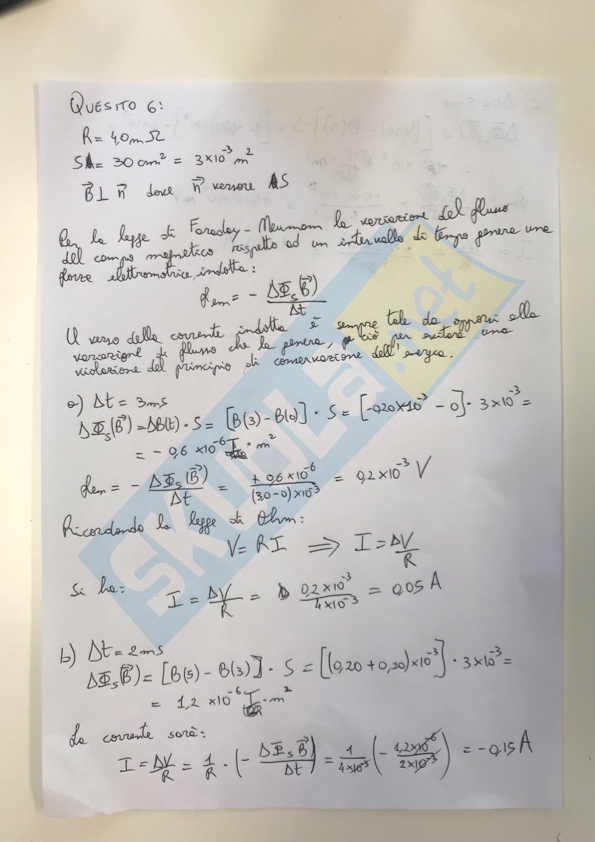 QUESITO 6:
R = 4,0 m Ω
S = 30 cm² = 3×10⁻³ m²
B⃗ ⊥ n⃗ dove n⃗ versore S
Per la legge di Faraday-Neumann la variazione del flusso
del campo magnetico rispetto ad un intervallo di tempo genera una
forza elettromotrice indotta:
fem = - ΔΦₛ(B⃗)/Δt
Il verso della corrente indotta è sempre tale da opporsi alla
variazione di flusso che la genera, ciò per evitare una
violazione del principio di conservazione dell'energia.
a) Δt = 3ms
ΔΦₛ(B⃗) = ΔB(t) · S = [B(3) - B(0)] · S = [-0,20×10⁻³ - 0] · 3×10⁻³ =
= - 0,6 ×10⁻⁶ T · m²
fem = - ΔΦₛ(B⃗)/Δt = + 0,6×10⁻⁶/(3,0-0)×10⁻³ = 0,2×10⁻³ V
Ricordando la legge di Ohm:
V = RI ⟹ I = ΔV/R
Si ha: I = ΔV/R = 0,2×10⁻³/4×10⁻³ = 0,05 A
b) Δt = 2ms
ΔΦₛ(B⃗) = [B(5) - B(3)] · S = [(0,20 + 0,20)×10⁻³] · 3×10⁻³ =
= 1,2 ×10⁻⁶ T · m²
La corrente sarà:
I = ΔV/R = 1/R · (- ΔΦₛ(B⃗)/Δt) = 1/4×10⁻³ (- 1,2×10⁻⁶/2×10⁻³) = -0,15 A
SKUOLA.net